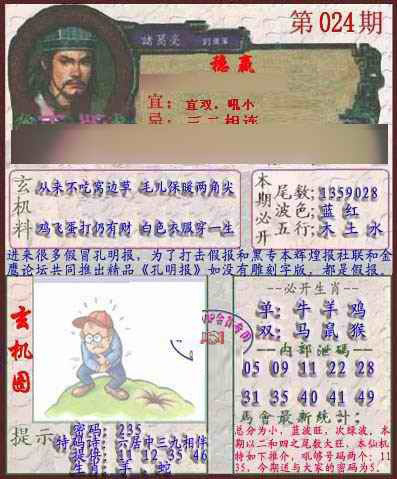 第024期
諸葛亮
稳赢
宜: 宜双，吼小
忌: 三二相连
玄机料
从来不吃窝边草 毛儿保暖两角尖
鸡飞蛋打仍有财 白色衣服穿一生
本期必开
尾数:1359028
波色:蓝 红
五行:木 土 水
进来很多假冒孔明报，为了打击假报和黑专本辉煌报社联和金
鹰论坛共同推出精品《孔明报》如没有雕刻字版，都是假报。
玄机图
--必开生肖--
单: 牛 羊 鸡
双: 马 鼠 猴
--内部泄码--
05 09 11 22 28
31 35 40 41 49
馬會最新统计:
总分为小，蓝波旺，次绿波，本
期以二和四之尾数大旺，本仙机
特如下推介，吼够号码两个: 11
35，今期送与大家的密码为5.
提示
密码: 235
特码诗: 六居中三九相伴
提倍: 11 12 35 46
生肖: 羊、蛇